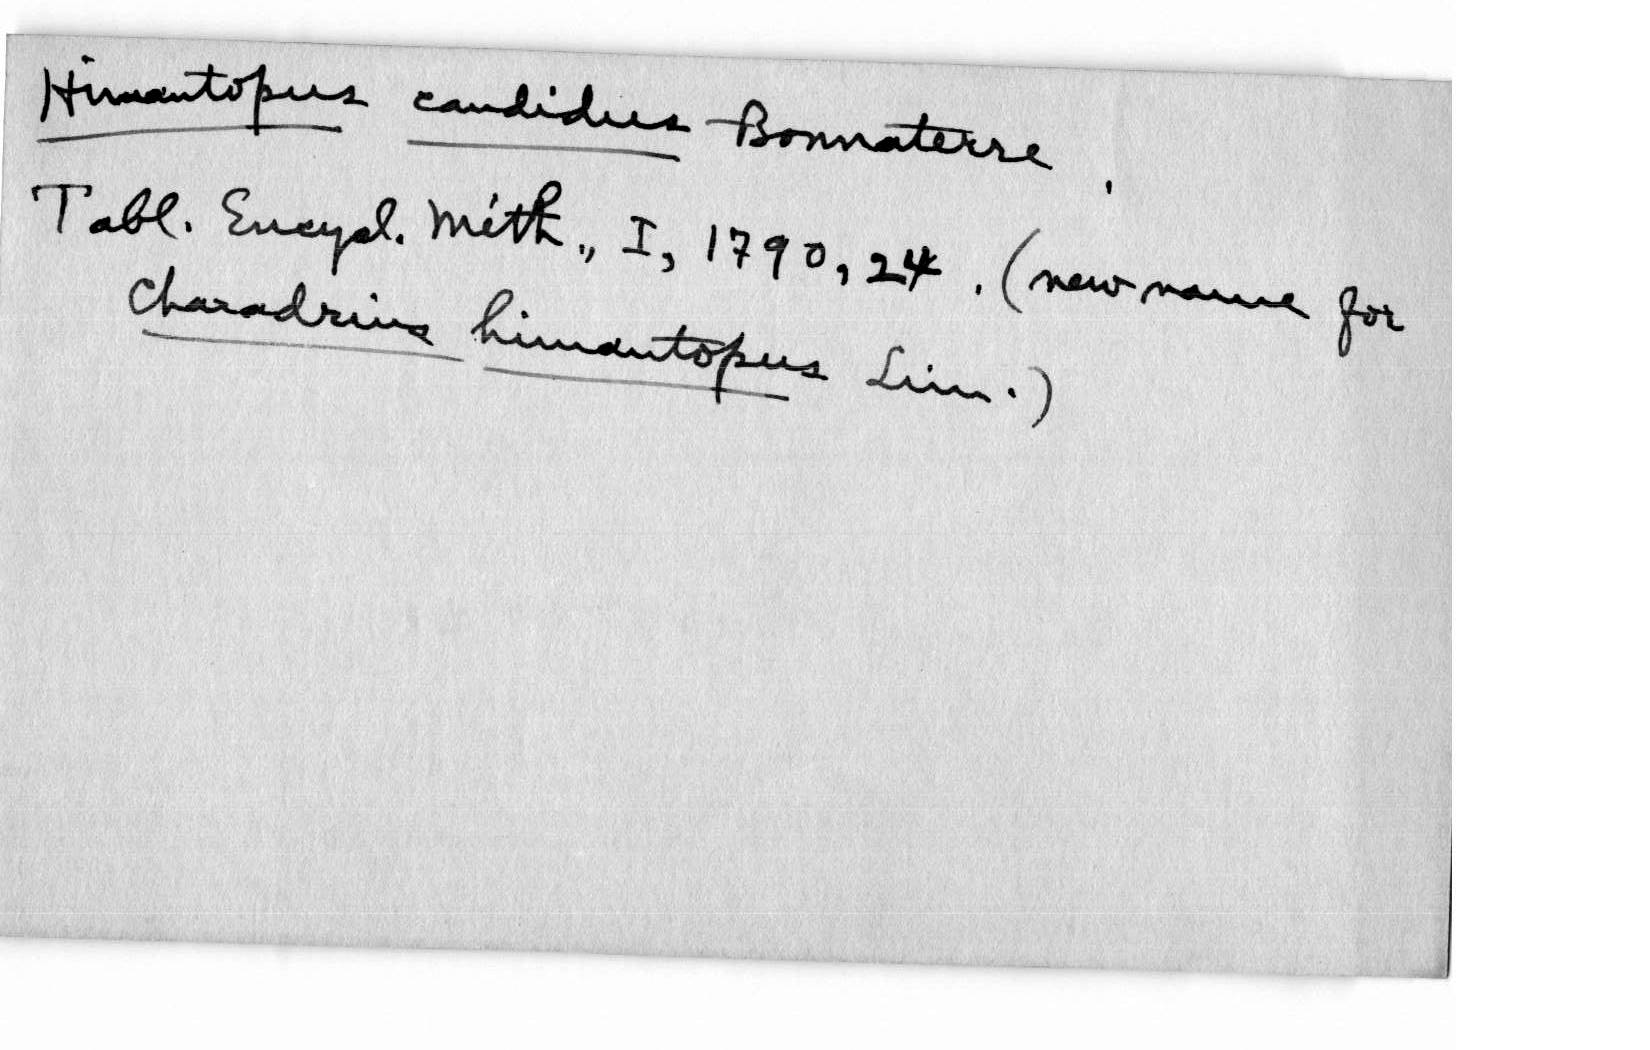 Himantopus candidus Bonnaterre,
Tabl. Encycl. Méth., I, 1790, 24. (new name for
Charadrius himantopus Linn.)